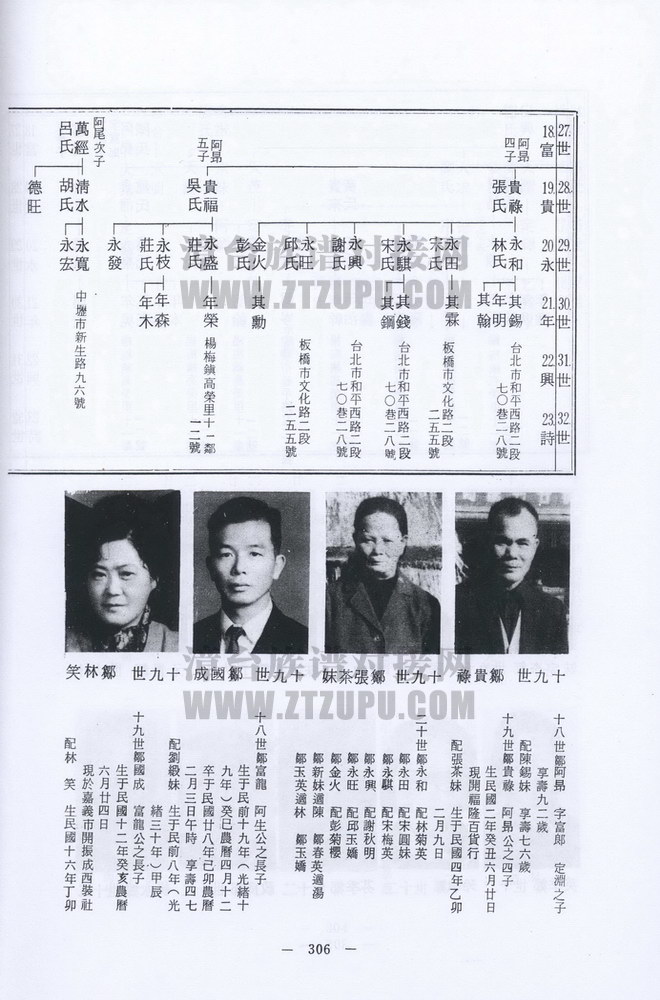 27.世 28.世 29.世 30.世 31.世 32.世
18.富 19.貴 20永 21.年 22.興 23.詩
阿昂四子
貴祿
張氏
永和
林氏
其錫
年明
其翰
台北市和平西路二段七〇巷二八號
永田
宋氏
其霖
板橋市文化路二段二五五號
永騏
宋氏
其錢
其鋼
台北市和平西路二段七〇巷二八號
永興
謝氏
台北市和平西路二段七〇巷二八號
永旺
邱氏
板橋市文化路二段二五五號
金火
彭氏
其勳
阿昂五子
貴福
吳氏
永盛
莊氏
年榮
楊梅鎮高榮里十二鄰一二號
永枝
莊氏
年森
年木
永發
阿尾次子
萬經
呂氏
清水
胡氏
永寬
永宏
中壢市新生路九六號
德旺
漳台族谱对接网
WWW.ZTZUPU.COM
十九世 鄒貴祿
十九世 鄒張茶妹
十九世 鄒國成
十九世 鄒林笑
漳台族谱对接网
WWW.ZTZUPU.COM
十八世鄒阿昂 字富郎 定淵之子
享壽九二歲
配陳錫妹 享壽七六歲
十九世鄒貴祿 阿昂公之四子
生民國二年癸丑六月廿日
現開福隆百貨行
配張茶妹 生于民國四年乙卯
二月九日
二十世鄒永和 配林菊英
鄒永田 配宋圓妹
鄒永騏 配宋梅英
鄒永興 配謝秋明
鄒永旺 配邱玉嬌
鄒金火 配彭菊櫻
鄒新妹適陳 鄒春英適湯
鄒玉英適林 鄒玉嬌
十八世鄒富龍 阿生公之長子
生于民前十九年（光緒十
九年）癸巳農曆四月十二
卒于民國廿八年己卯農曆
二月三日午時 享壽四七
配劉緞妹 生于民前八年（光
緒三十年）甲辰
十九世鄒國成 富龍公之長子
生于民國十二年癸亥農曆
六月廿四日
現於嘉義市開振成西裝社
配林 笑 生民國十六年丁卯
— 306 —